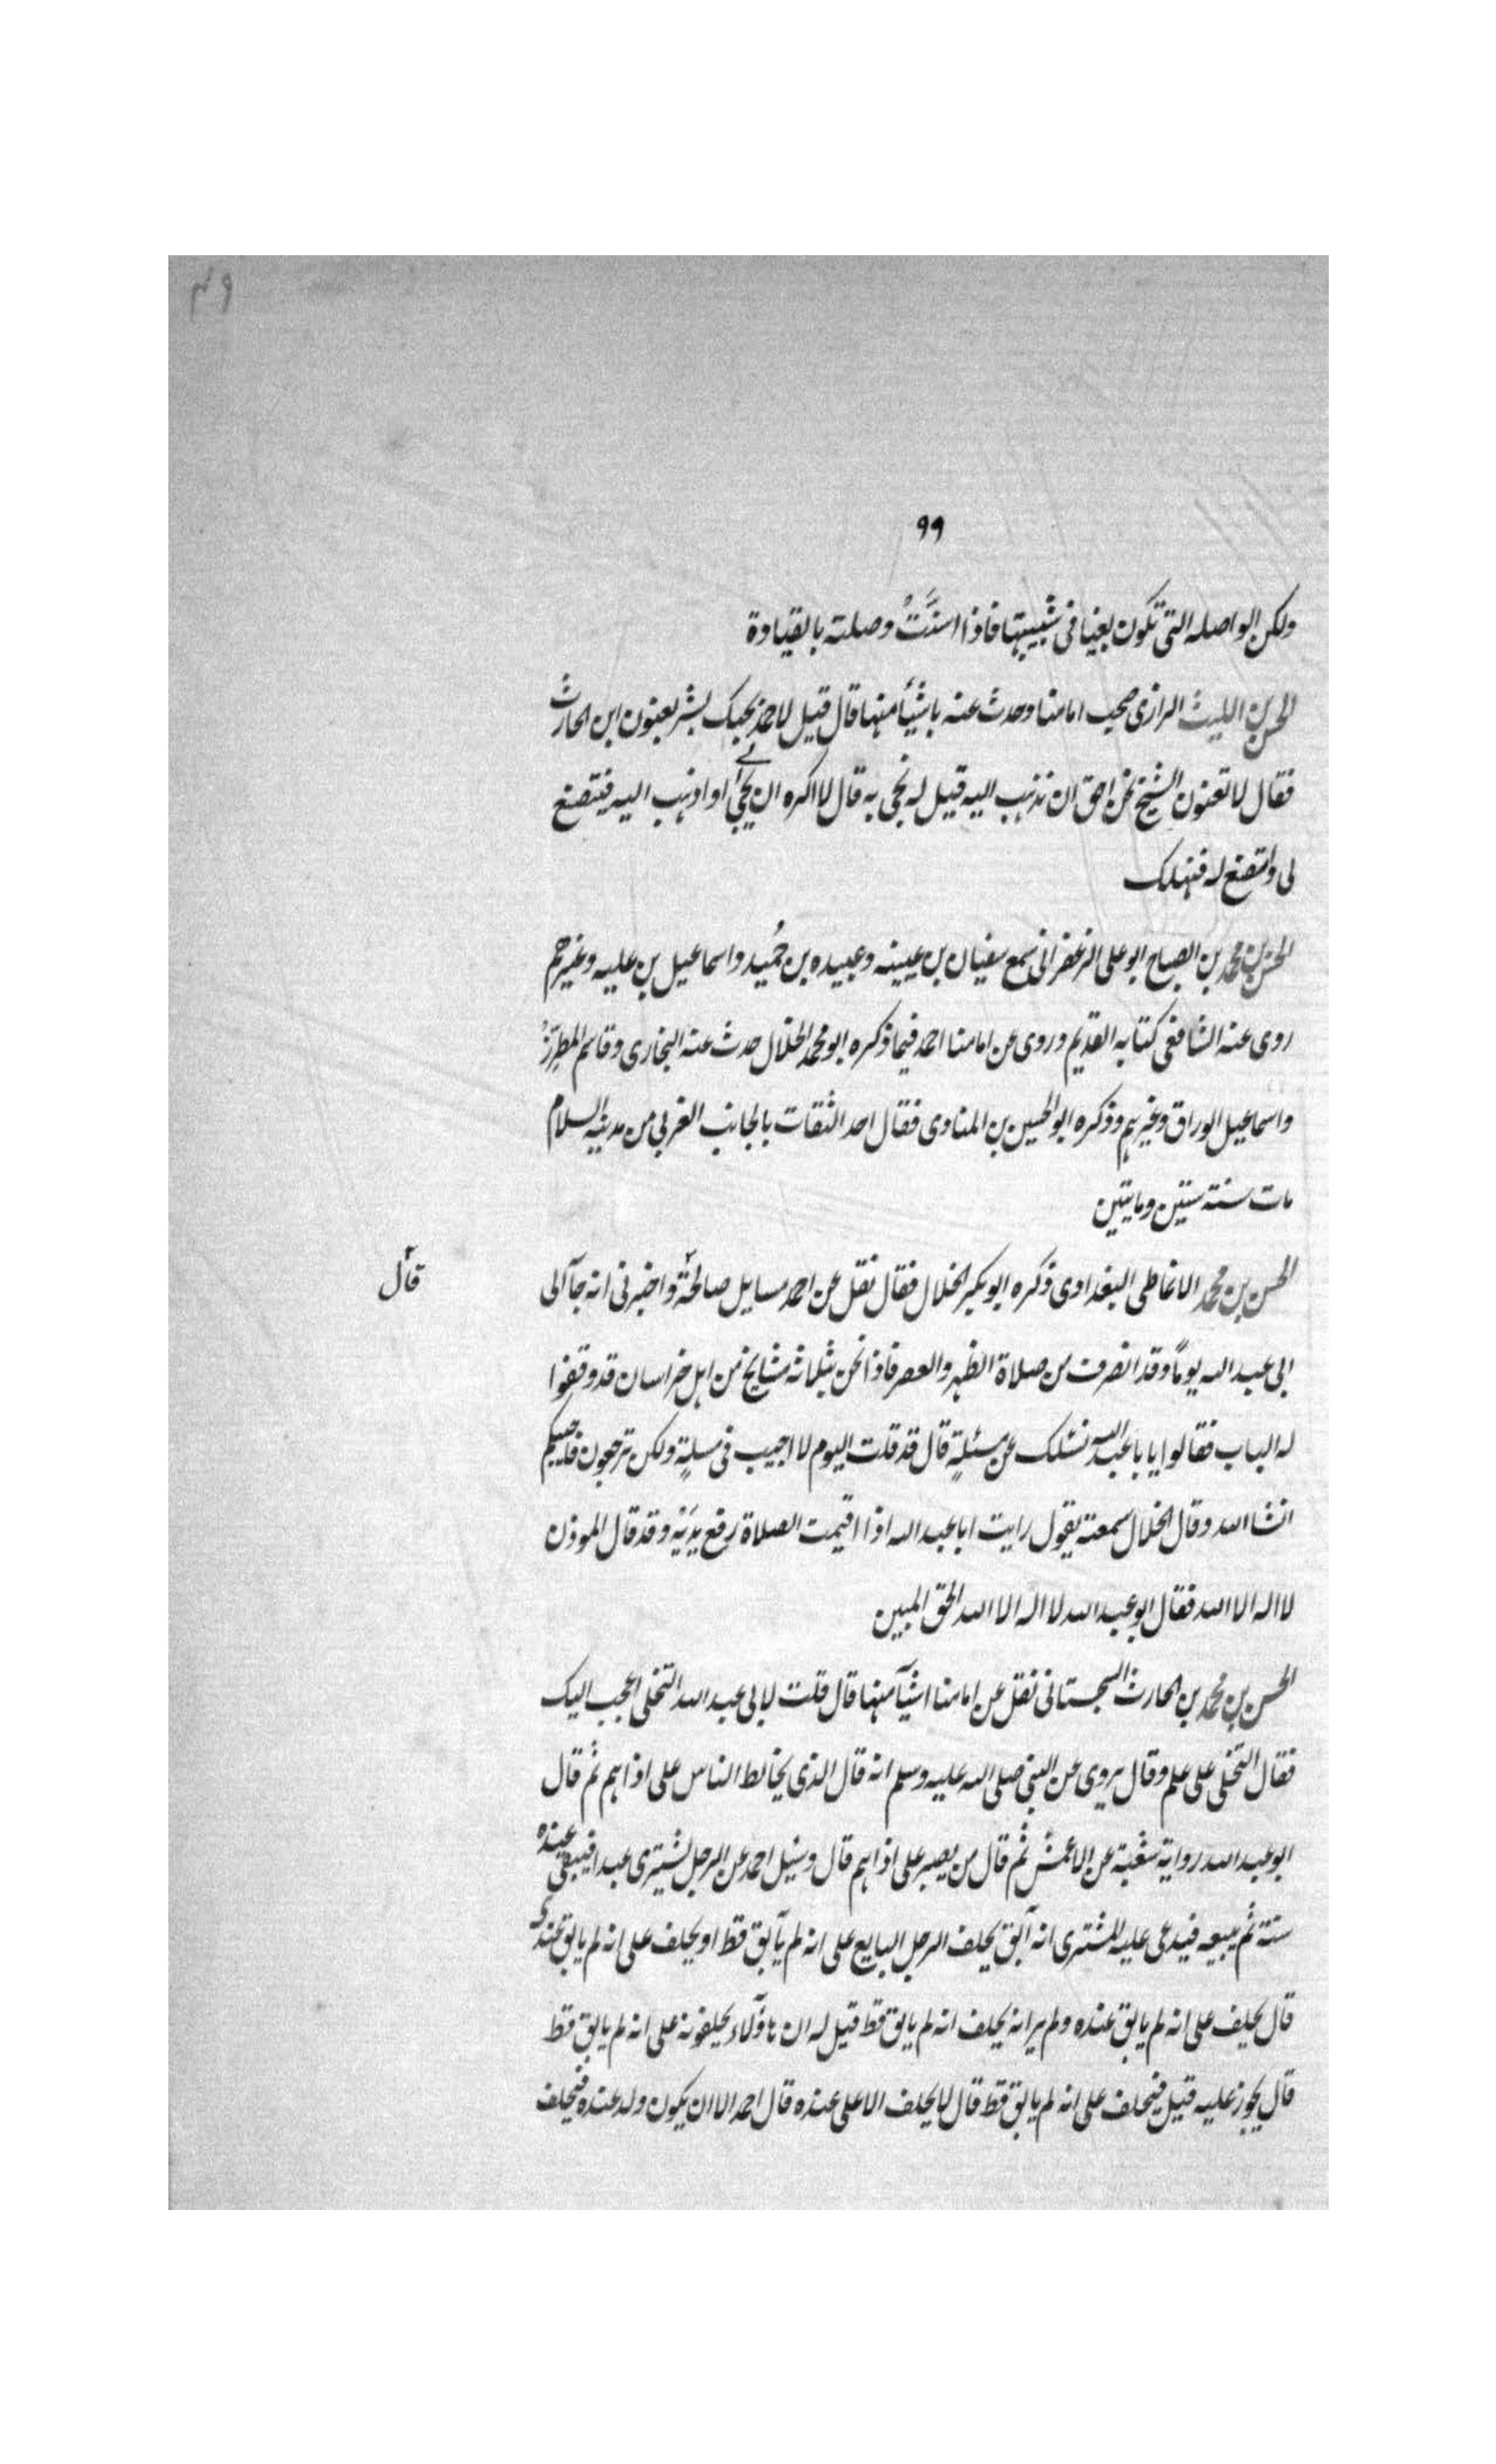 ٩٩
ولكن الواصله التى تكون بغيا فى شبيبتها فاذا اسنَّتْ وصلته بالقيادة
الحسن بن الليث الرازى صحب امامنا وحدث عنه باشيأ منها قال قيل لاحمد يحبك بشر يعنون ابن الحارث
فقال لا تعنون الشيخ نحن احق ان نذهب اليه قيل له نجى به قال لا اكره ان يجى الى او اذهب اليه فيتصنع
لى واتصنع له فنهلك
الحسن بن محمد بن الصباح ابو على الزعفرانى سمع سفيان بن عيينه وعبيده بن حُميد واسماعيل بن عليه وغيرهم
روى عنه الشافعى كتابه القديم وروى عن امامنا احمد فيما ذكره ابو محمد الخلال حدث عنه البخارى وقاسم المطرِّزُ
واسماعيل الوراق وغيرهم وذكره ابو الحسين بن المناوى فقال احد الثقات بالجانب الغربى من مدينه السلام
مات سنة ستين ومايتين
الحسن بن محمد الانماطى البغدادى ذكره ابو بكير الخلال فقال نقل عن احمد مسايل صالحة واخبرنى انه جآ الى
قال
ابى عبد الله يوماً وقد انصرفت من صلاة الظهر والعصر فاذا نحن بثلمائه مشايخ من اهل خراسان قد وقفوا
له الباب فقالوا يا با عبد الله نسئلك عن مسئلةٍ قال قد قلت اليوم لا اجيب فى مسلةٍ ولكن ترجعون فاجيبكم
انشا الله وقال الخلال سمعته يقول رايت ابا عبد الله اذا اقيمت الصلاة رفع يديه وقد قال الموذن
لا اله الا الله فقال ابو عبد الله لا اله الا الله الحق المبين
الحسن بن محمد بن الحارث السجستانى نقل عن امامنا اشيآ منها قال قلت لابى عبد الله التخلى اعجب اليك
فقال التخلى على علم وقال يروى عن النبى صلى الله عليه وسلم انه قال الذى يخالط الناس على اذاهم ثم قال
ابو عبد الله رواية شعبة عن الاعمش ثم قال من يصبر على اذاهم قال وسئل احمد عن الرجل يشترى عبدا فيبقى عنده
سنة ثم يبيعه فيدعى عليه المشترى انه آبق يحلف الرجل البايع على انه لم يآبق قط او يحلف على انه لم يابق عنده
قال يحلف على انه لم يابق عنده ولم ير انه يحلف انه لم يابق قط قيل له ان هاؤلاء يحلفونه على انه لم يابق قط
قال يجوز عليه قيل فيحلف على انه لم يابق قط قال لا يحلف الا على عنده قال احمد الا ان يكون ولد عنده فيحلف